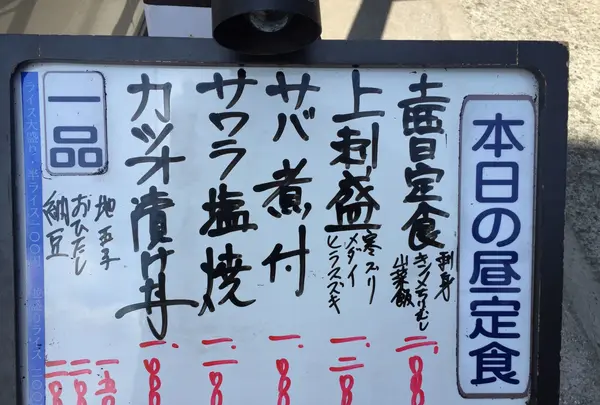 本日の昼定食
日定食
刺身
山菜飯
上刺盛
寒ブリ
メダイ
ヒラスズキ
サバ煮付
サワラ塩焼
カツオ漬け丼
一品
地玉子
おひたし
納豆
ライス大盛り・半ライス一〇〇円 並盛りライス二〇〇